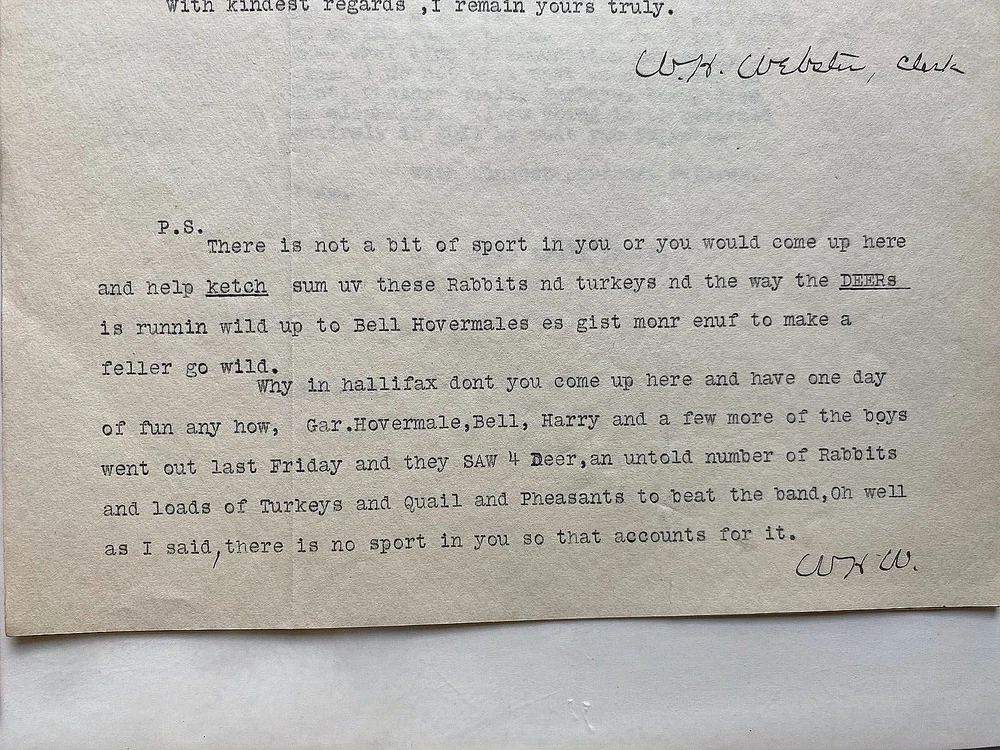 With kindest regards ,I remain yours truly.
W.H. Webster, Clerk
P.S.
There is not a bit of sport in you or you would come up here
and help ketch sum uv these Rabbits nd turkeys nd the way the DEERs
is runnin wild up to Bell Hovermales es gist monr enuf to make a
feller go wild.
Why in hallifax dont you come up here and have one day
of fun any how, Gar.Hovermale,Bell, Harry and a few more of the boys
went out last Friday and they SAW 4 Deer,an untold number of Rabbits
and loads of Turkeys and Quail and Pheasants to beat the band,Oh well
as I said,there is no sport in you so that accounts for it.
WHW.